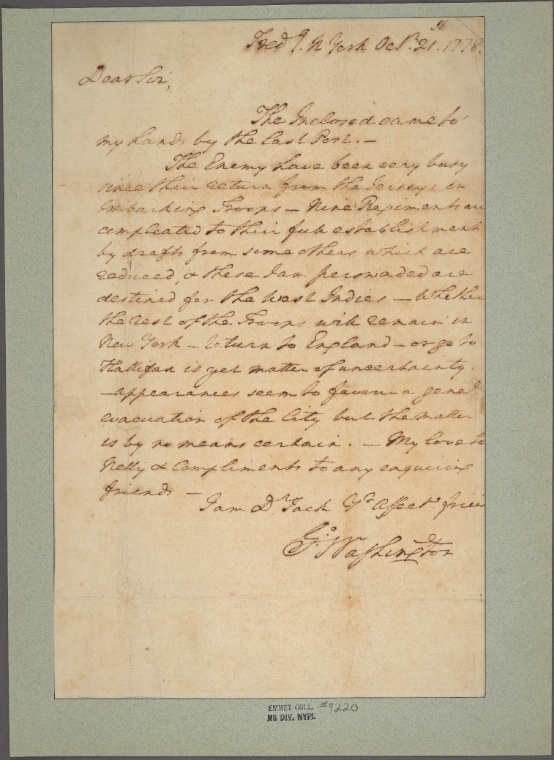 Fred.g N York Octr. 21st. 1778.
Dear Sir,
The Inclosed came to
my hands by the last Post. —
The Enemy have been very busy
since their return from the Jerseys in
embarking Troops — Nine Regiments are
compleated to their full establishment
by drafts from some others which are
reduced, & these I am perswaded are
destined for the West Indies — Whether
the rest of the Troops will remain in
New York — return to England — or go to
Hallifax is yet matter of uncertainty.
— appearances seem to favour a genel
evacuation of the City but the matter
is by no means certain. — My love to
Nelly & compliments to any enquiring
friends —
I am Dr Jack Yr Affecte frien
Go: Washington
EMMET COLL. #9220
MS DIV. NYPL